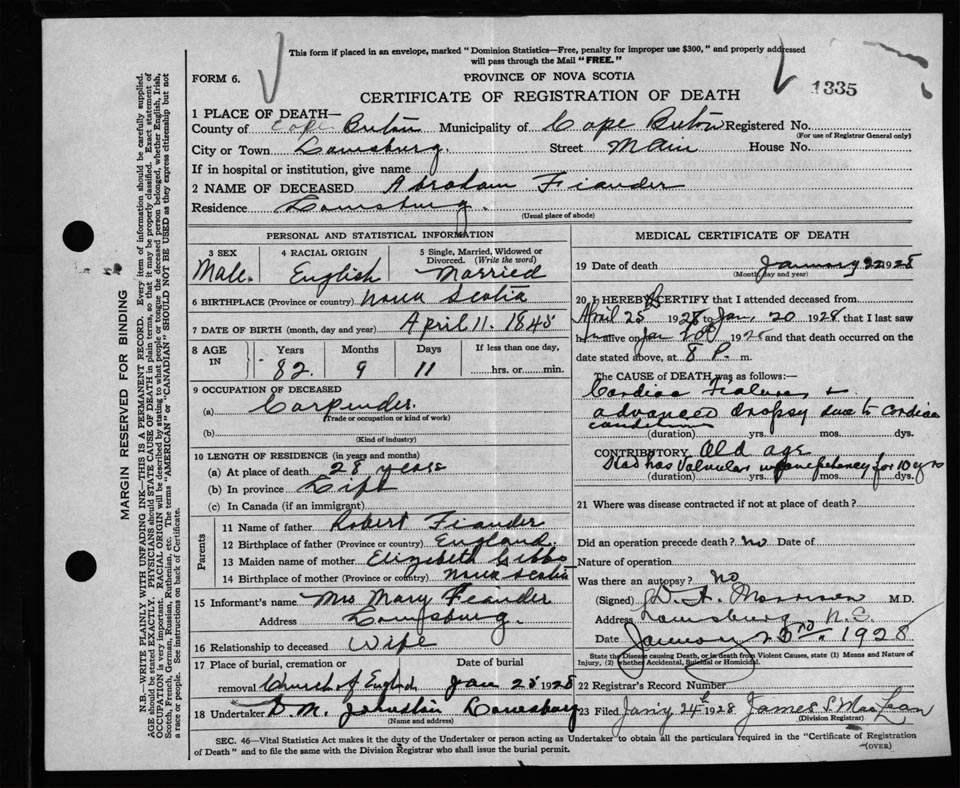 This form if placed in an envelope, marked "Dominion Statistics—Free, penalty for improper use $300," and properly addressed
will pass through the Mail "FREE."
FORM 6.
PROVINCE OF NOVA SCOTIA
1335
CERTIFICATE OF REGISTRATION OF DEATH
1 PLACE OF DEATH—
County of Cape Breton Municipality of Cape Breton Registered No.
(For use of Registrar General only)
City or Town Louisburg. Street Main House No.
If in hospital or institution, give name
2 NAME OF DECEASED Abraham Fiander
Residence Louisburg.
(Usual place of abode)
PERSONAL AND STATISTICAL INFORMATION
3 SEX 4 RACIAL ORIGIN 5 Single, Married, Widowed or Divorced. (Write the word)
Male. English Married
6 BIRTHPLACE (Province or country) Nova Scotia
7 DATE OF BIRTH (month, day and year) April 11. 1845
8 AGE IN Years Months Days If less than one day.
82. 9 11 hrs. or min.
9 OCCUPATION OF DECEASED
(a) Carpender.
(Trade or occupation or kind of work)
(b)
(Kind of industry)
10 LENGTH OF RESIDENCE (in years and months)
(a) At place of death 28 years
(b) In province Life
(c) In Canada (if an immigrant)
Parents
11 Name of father Robert Fiander
12 Birthplace of father (Province or country) England
13 Maiden name of mother Elizabeth Gibbs
14 Birthplace of mother (Province or country) Nova Scotia
15 Informant's name Mrs Mary Fiander
Address Louisburg.
16 Relationship to deceased Wife
17 Place of burial, cremation or Date of burial
removal Church of England Jan 25 1928
18 Undertaker D. M. Johnston Louisburg
(Name and address)
MEDICAL CERTIFICATE OF DEATH
19 Date of death January 22 1928
(Month, day and year)
20 I HEREBY CERTIFY that I attended deceased from
April 25 1928 to Jan. 20 1928 that I last saw
him alive on Jan 20 1928 and that death occurred on the
date stated above, at 8 P. m.
The CAUSE of DEATH was as follows:—
Cardiac Failure &
advanced dropsy due to cardiac
condition
(duration) yrs. mos. dys.
CONTRIBUTORY Old age
Had has Valvular for 10 yrs
(duration) yrs. mos. dys.
21 Where was disease contracted if not at place of death?
Did an operation precede death? no Date of
Nature of operation
Was there an autopsy? no
(Signed) Morrison M.D.
Address Louisburg N.S.
Date January 23rd, 1928
State the Disease causing Death, or in death from Violent Causes, state (1) Means and Nature of
Injury, (2) whether Accidental, Suicidal or Homicidal.
22 Registrar's Record Number
23 Filed Jan'y 24th 1928 James S. MacLean
(Division Registrar)
SEC. 46—Vital Statistics Act makes it the duty of the Undertaker or person acting as Undertaker to obtain all the particulars required in the "Certificate of Registration
of Death" and to file the same with the Division Registrar who shall issue the burial permit.
(OVER)
MARGIN RESERVED FOR BINDING
N.B.—WRITE PLAINLY WITH UNFADING INK—THIS IS A PERMANENT RECORD. Every item of information should be carefully supplied.
AGE should be stated EXACTLY. PHYSICIANS should STATE CAUSE OF DEATH in plain terms, so that it may be properly classified. Exact statement of
OCCUPATION is very important. RACIAL ORIGIN will be described by stating to what people or tongue the deceased person belonged, whether English, Irish,
Scotch, French, German, Russian, Ruthenian, etc. The terms "AMERICAN" or "CANADIAN" SHOULD NOT BE USED as they express citizenship but not
a race or people. See instructions on back of Certificate.